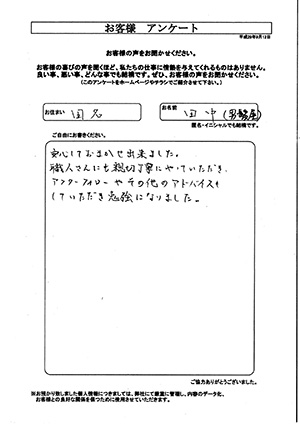 お客様 アンケート
平成26年8月12日
お客様の声をお聞かせください。
お客様の喜びの声を聞くほど、私たちの仕事に情熱を与えてくれるものはありません。
良い事、悪い事、どんな事でも結構です。ぜひ、お客様の声をお聞かせください。
(このアンケートをホームページやチラシでご紹介させて下さい。)
お住まい
お名前
田中
匿名・イニシャルでも結構です。
ご自由にお書きください。
安心しておまかせ出来ました。
職人さんにも親切丁寧にやっていただき、
アフターフォローやその他のアドバイスも
していただき勉強になりました。
ご協力ありがとうございました。
※お預かり致しました個人情報につきましては、弊社にて厳重に管理し、内容のデータ化、
お客様との良好な関係を保つために使用させていただきます。